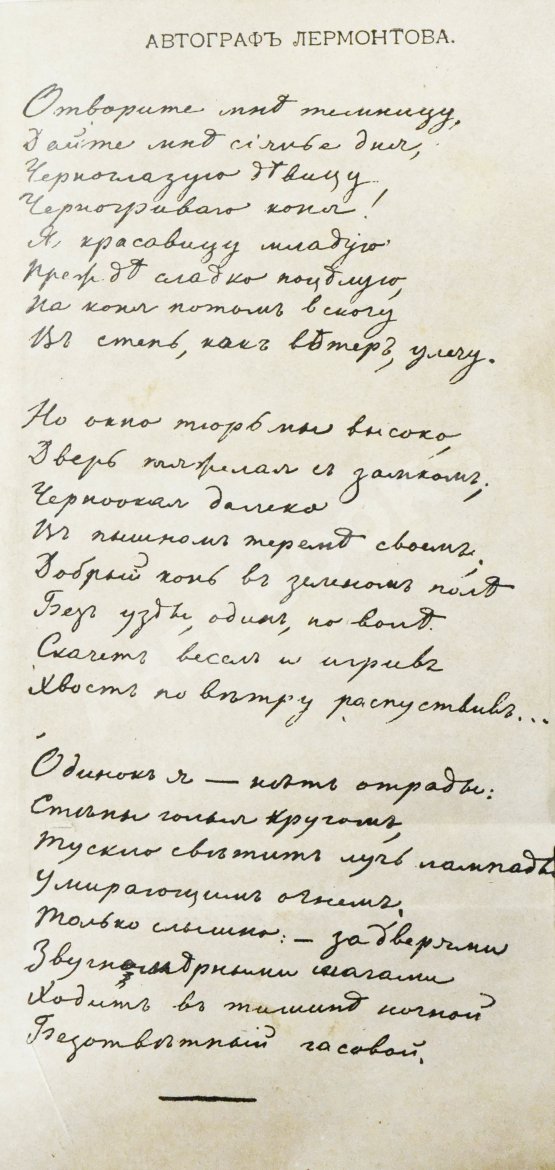 АВТОГРАФЪ ЛЕРМОНТОВА.
Отворите мнѣ темницу,
Дайте мнѣ сіянье дня,
Черноглазую дѣвицу
Черногриваго коня!
Я красавицу младую
Прежде сладко поцѣлую,
На коня потомъ вскочу
Въ степь, какъ вѣтеръ, улечу.
Но окно тюрьмы высоко,
Дверь тяжелая съ замкомъ;
Черноокая далеко
Въ пышномъ теремѣ своемъ;
Добрый конь въ зеленомъ полѣ
Безъ узды, одинъ, по волѣ
Скачетъ веселъ и игривъ
Хвостъ по вѣтру распустивъ...
Одинокъ я — нѣтъ отрады:
Стѣны голыя кругомъ,
Тускло свѣтитъ лучъ лампады
Умирающимъ огнемъ.
Только слышно: — за дверями
Звучномѣрными шагами
Ходитъ въ тишинѣ ночной
Безотвѣтный часовой.